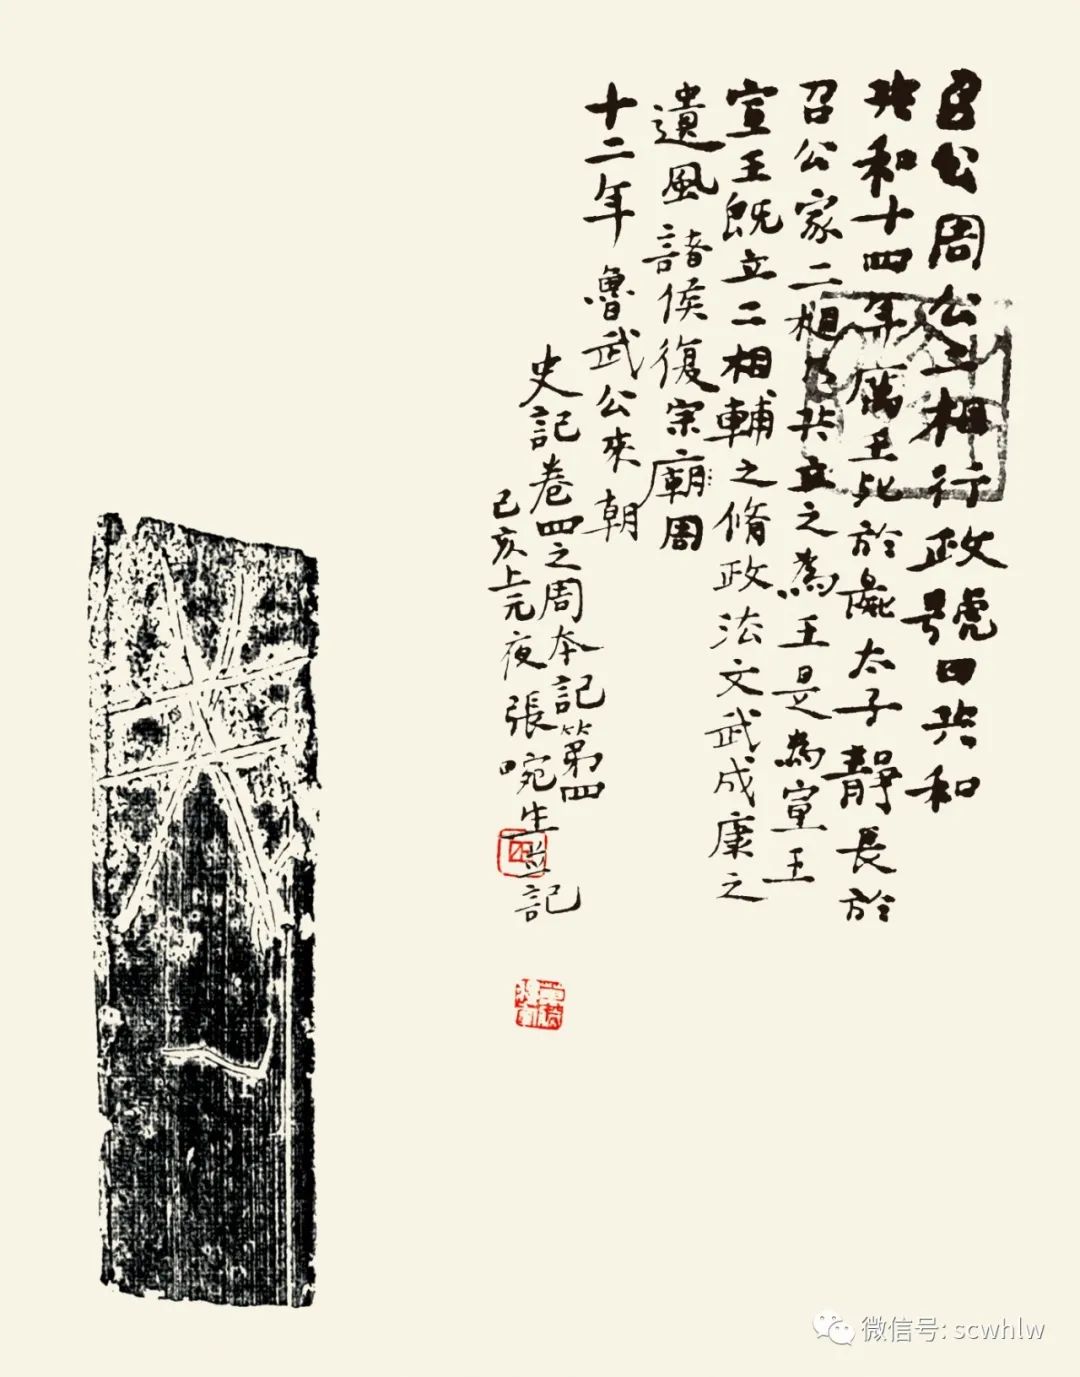 召公周公二相行政號曰共和
共和十四年厲王死於彘太子靜長於
召公家二相乃共立之為王是為宣王
宣王既立二相輔之脩政法文武成康之
遺風諸侯復宗廟周
十二年魯武公來朝
史記卷四之周本記第四
己亥上元夜張啘生並記
微信号: scwhlw